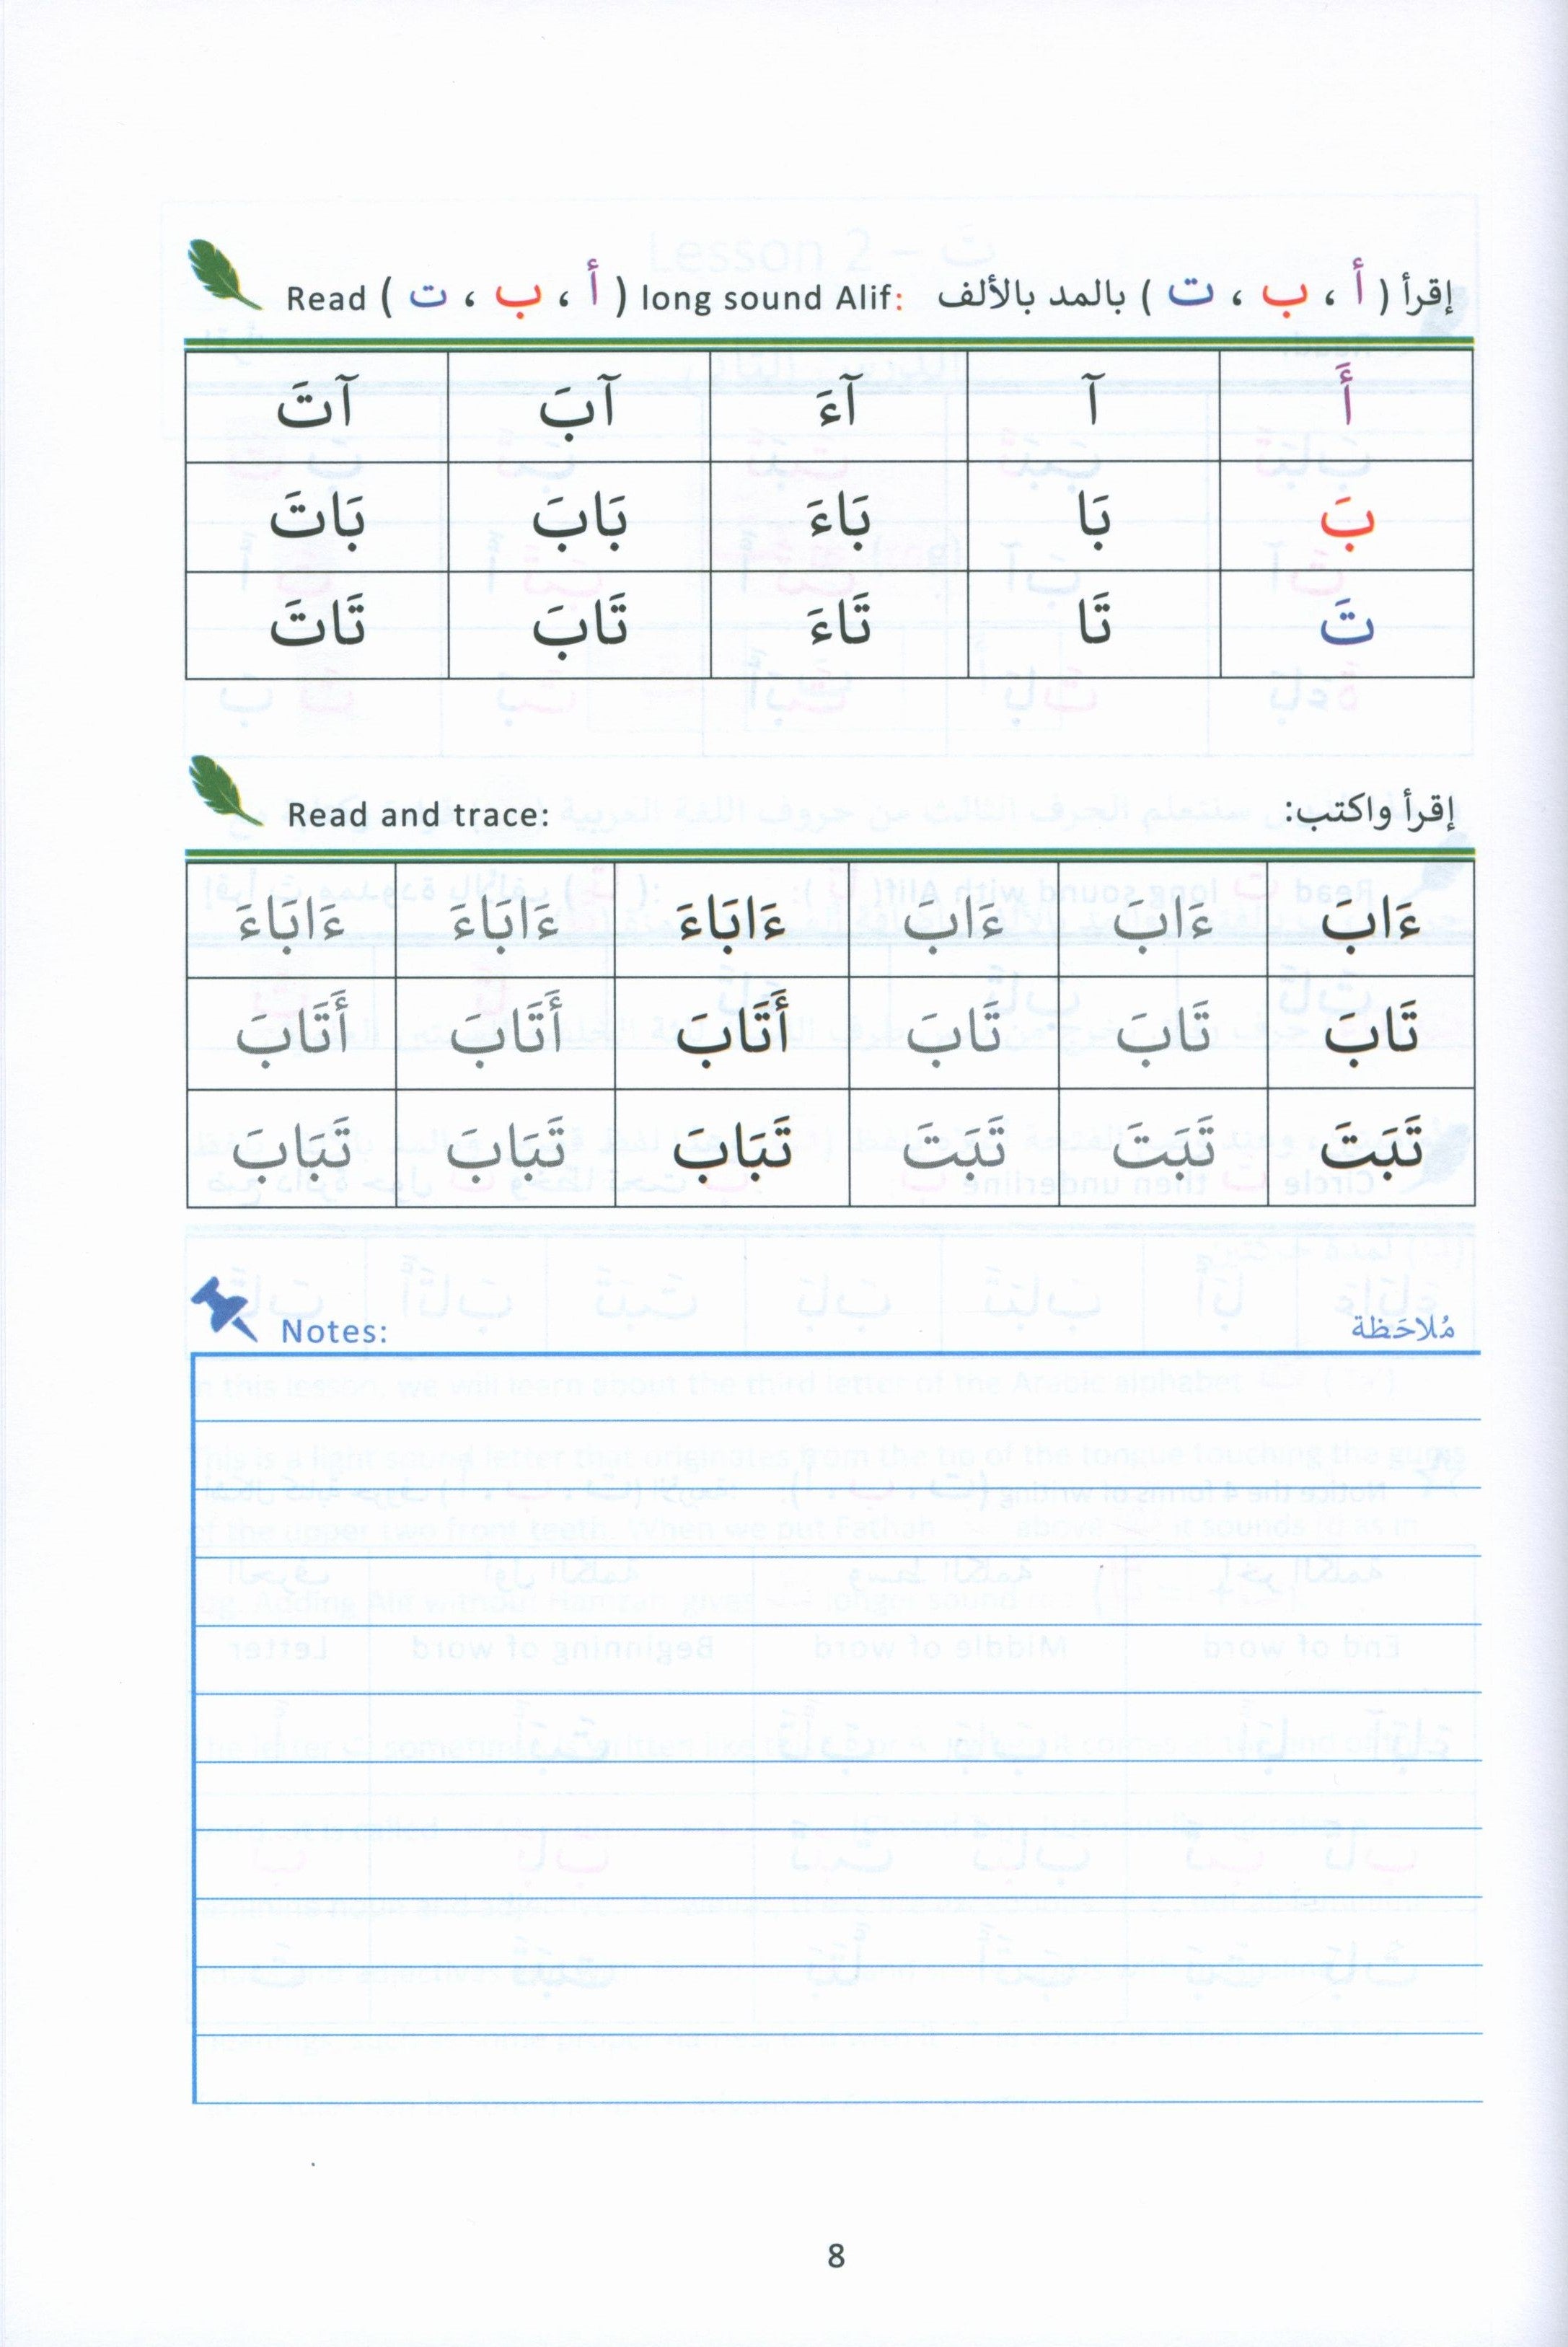 Read ( أ ، ب ، ت ) long sound Alif: إقرأ ( أ ، ب ، ت ) بالمد بالألف
أَ آ آءَ آبَ آتَ
بَ بَا بَاءَ بَابَ بَاتَ
تَ تَا تَاءَ تَابَ تَاتَ
Read and trace: إقرأ واكتب:
ءَابَ ءَابَ ءَابَ ءَابَاءَ ءَابَاءَ ءَابَاءَ
تَابَ تَابَ تَابَ أَتَابَ أَتَابَ أَتَابَ
تَبَتَ تَبَتَ تَبَتَ تَبَابَ تَبَابَ تَبَابَ
Notes: مُلاحَظة
8